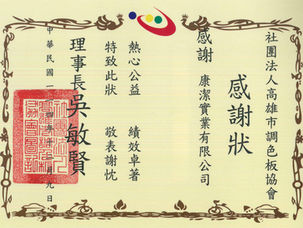 社團法人高雄市調色板協會
感謝狀
感謝 康潔實業有限公司
熱心公益 績效卓著
特致此狀 敬表謝忱
理事長 吳敏賢
中華民國一
月
日